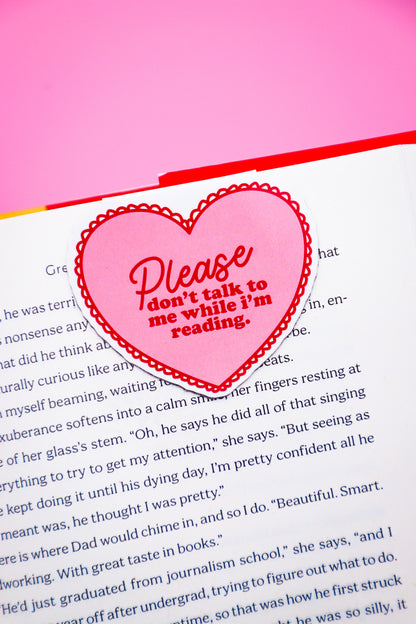 Please
don't talk to
me while i'm
reading.
Gre
, he was terri hat
s nonsense any
hat did he think ab in, en-
urally curious like any be.
n myself beaming, waiting fo eats.
xuberance softens into a calm smi her fingers resting at
e of her glass's stem. "Oh, he says he did all of that singing
erything to try to get my attention," she says. "But seeing as
e kept doing it until his dying day, I'm pretty confident all he
meant was, he thought I was pretty."
ere is where Dad would chime in, and so I do. "Beautiful. Smart.
dworking. With great taste in books."
"He'd just graduated from journalism school," she says, "and I
wear off after undergrad, trying to figure out what to do.
ntime, so that was how he first struck
ht he was so silly, it